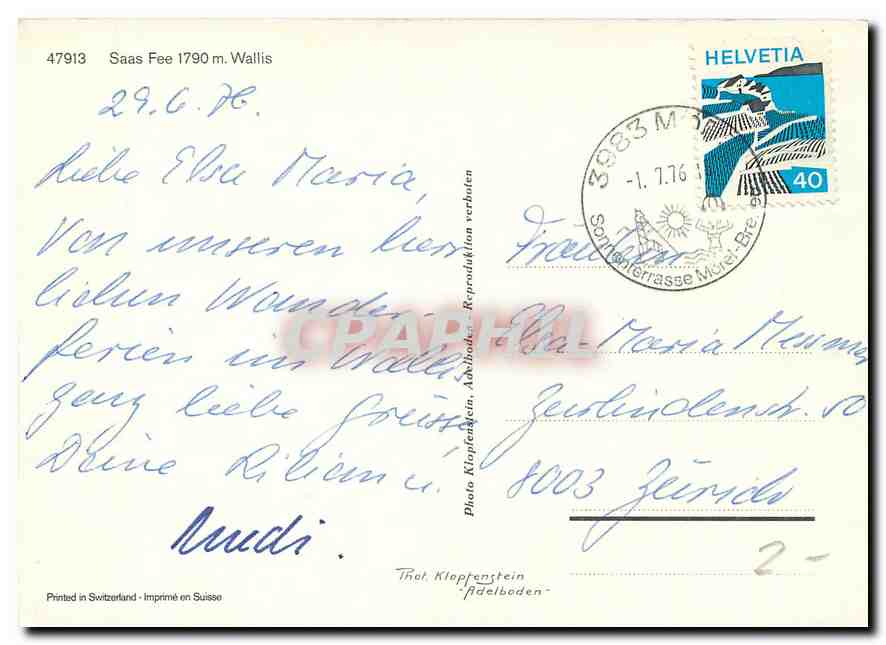 47913 Saas Fee 1790 m. Wallis
29.6.76.
Liebe Elsa Maria,
Von unseren herr
lichen Wander-
ferien im Wallis
ganz liebe Grüsse
Deine Lilian u.
Ruedi.
Printed in Switzerland - Imprimé en Suisse
Photo Klopfenstein, Adelboden - Reproduktion verboten
HELVETIA
40
3983 Mör
-1.7.76
Sonnenterrasse Mörel-Bre
Fräulein
Elsa-Maria Messmer
Zurlindenstr. 50
8003 Zürich
2-
Phot. Klopfenstein
-Adelboden-
CPAPHIL